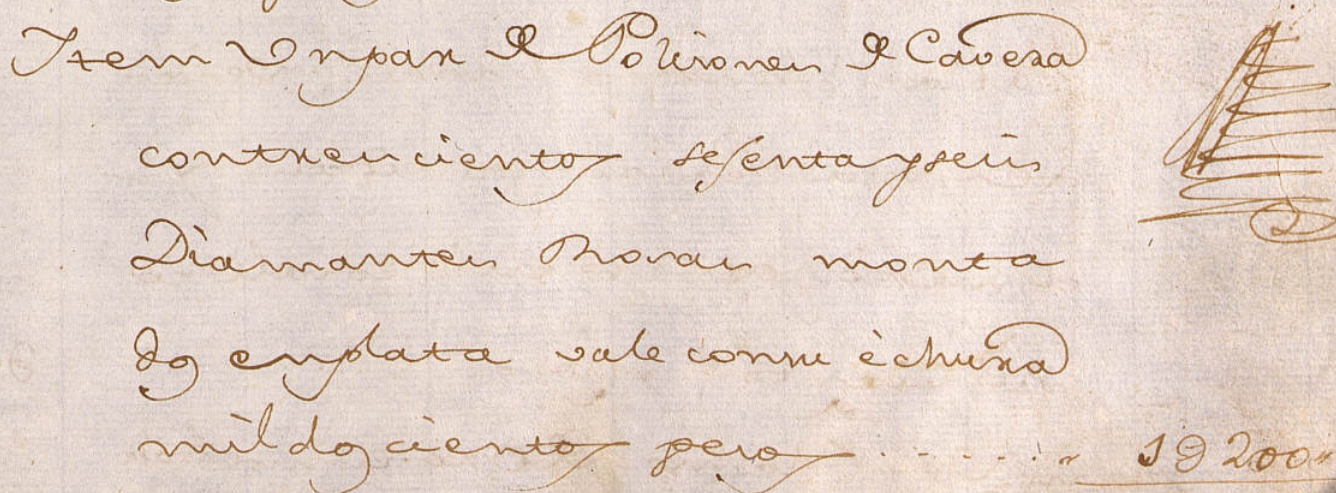 Item Vn par de Polisones de Cavesa
contrescientos sesenta yseis
Diamantes Rosas monta
dos enplata vale consu èchura
mil dos cientos pesos . . . . . . 1 9 200„